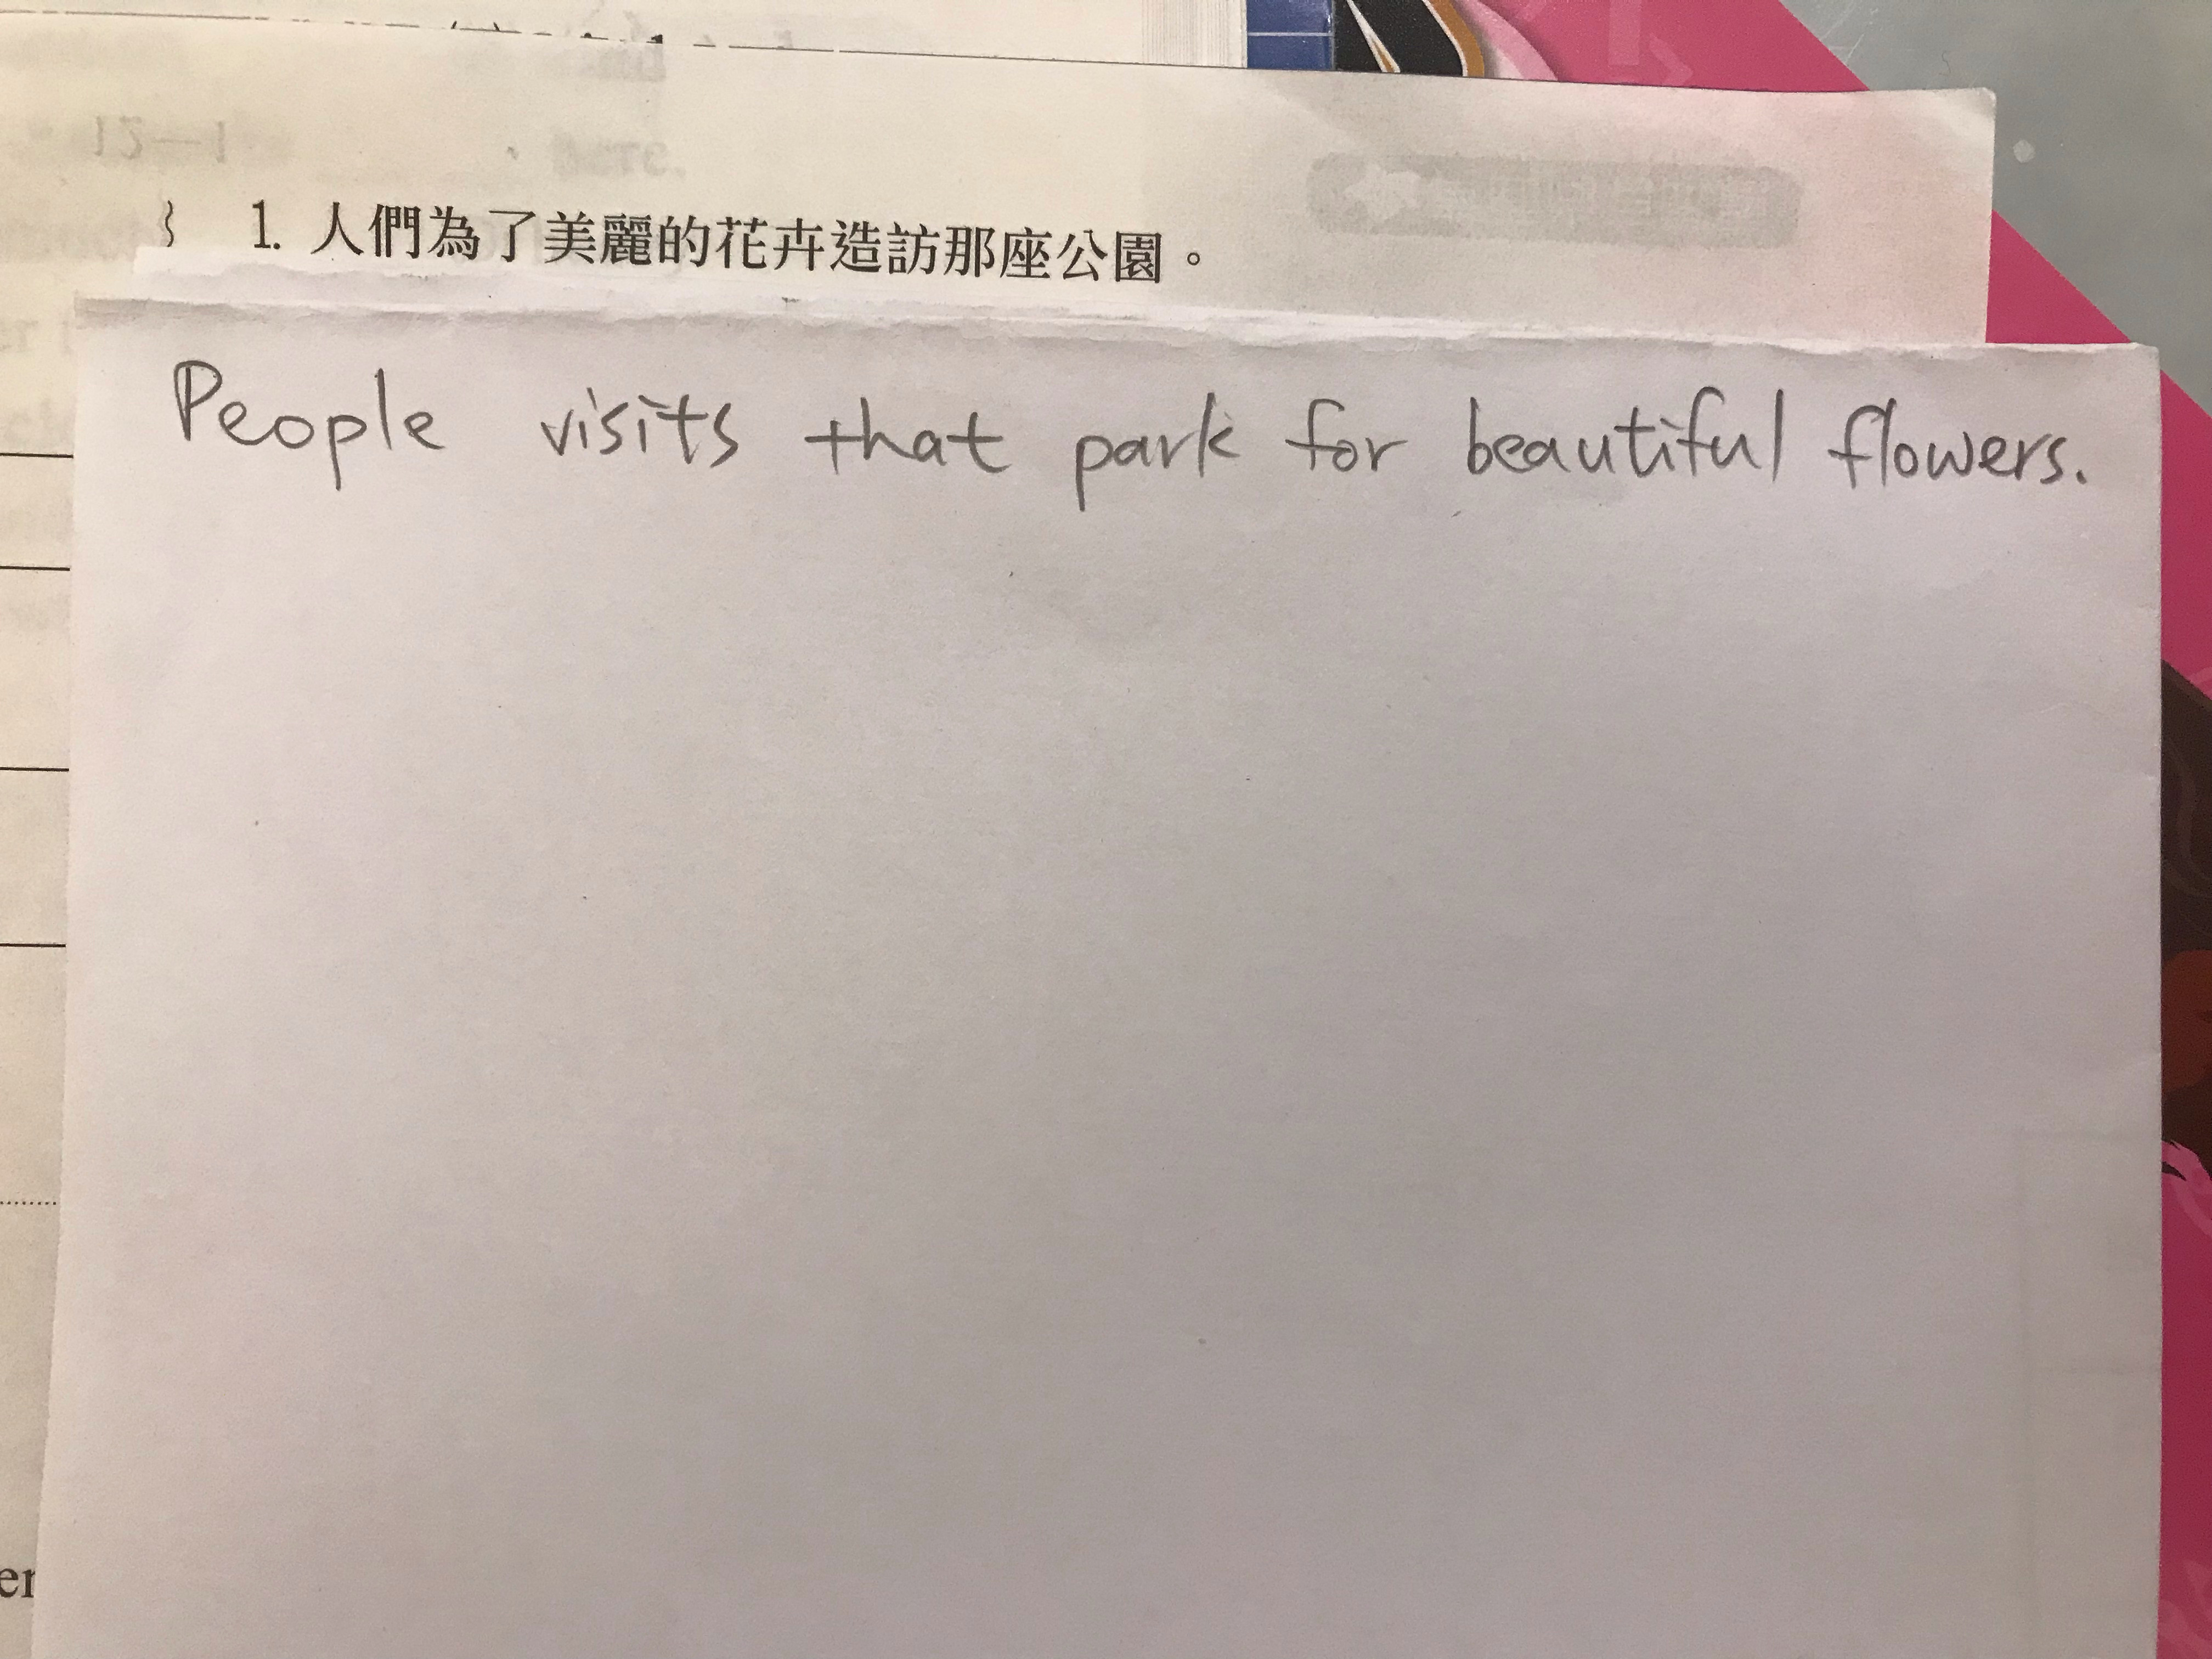 1. 人們為了美麗的花卉造訪那座公園。
People visits that park for beautiful flowers.
er